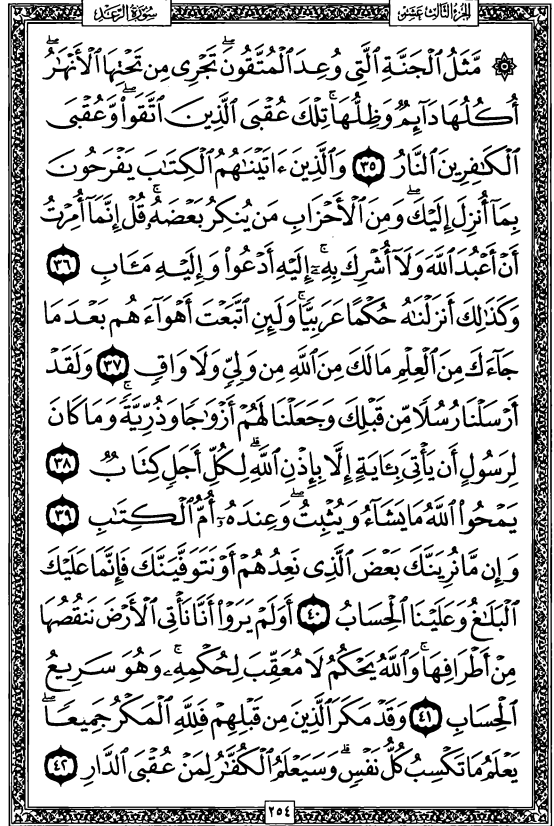 الجزء الثالث عشر سورة الرعد
۞ مَّثَلُ الْجَنَّةِ الَّتِي وُعِدَ الْمُتَّقُونَ ۖ تَجْرِي مِن تَحْتِهَا الْأَنْهَٰرُ ۖ
أُكُلُهَا دَآئِمٌ وَظِلُّهَا ۚ تِلْكَ عُقْبَى الَّذِينَ اتَّقَوا۟ ۖ وَّعُقْبَى
الْكَٰفِرِينَ النَّارُ ٣٥ وَالَّذِينَ ءَاتَيْنَٰهُمُ الْكِتَٰبَ يَفْرَحُونَ
بِمَآ أُنزِلَ إِلَيْكَ ۖ وَمِنَ الْأَحْزَابِ مَن يُنكِرُ بَعْضَهُۥ ۚ قُلْ إِنَّمَآ أُمِرْتُ
أَنْ أَعْبُدَ اللَّهَ وَلَآ أُشْرِكَ بِهِۦٓ ۚ إِلَيْهِ أَدْعُوا۟ وَإِلَيْهِ مَـَٔابِ ٣٦
وَكَذَٰلِكَ أَنزَلْنَٰهُ حُكْمًا عَرَبِيًّا ۚ وَلَئِنِ اتَّبَعْتَ أَهْوَآءَهُم بَعْدَ مَا
جَآءَكَ مِنَ الْعِلْمِ مَا لَكَ مِنَ اللَّهِ مِن وَلِيٍّ وَلَا وَاقٍ ٣٧ وَلَقَدْ
أَرْسَلْنَا رُسُلًا مِّن قَبْلِكَ وَجَعَلْنَا لَهُمْ أَزْوَٰجًا وَذُرِّيَّةً ۚ وَمَا كَانَ
لِرَسُولٍ أَن يَأْتِيَ بِـَٔايَةٍ إِلَّا بِإِذْنِ اللَّهِ ۗ لِكُلِّ أَجَلٍ كِتَابٌ ٣٨
يَمْحُوا۟ اللَّهُ مَا يَشَآءُ وَيُثْبِتُ ۖ وَعِندَهُۥٓ أُمُّ الْكِتَٰبِ ٣٩
وَإِن مَّا نُرِيَنَّكَ بَعْضَ الَّذِي نَعِدُهُمْ أَوْ نَتَوَفَّيَنَّكَ فَإِنَّمَا عَلَيْكَ
الْبَلَٰغُ وَعَلَيْنَا الْحِسَابُ ٤٠ أَوَلَمْ يَرَوْا۟ أَنَّا نَأْتِي الْأَرْضَ نَنقُصُهَا
مِنْ أَطْرَافِهَا ۚ وَاللَّهُ يَحْكُمُ لَا مُعَقِّبَ لِحُكْمِهِۦ ۚ وَهُوَ سَرِيعُ
الْحِسَابِ ٤١ وَقَدْ مَكَرَ الَّذِينَ مِن قَبْلِهِمْ فَلِلَّهِ الْمَكْرُ جَمِيعًا ۖ
يَعْلَمُ مَا تَكْسِبُ كُلُّ نَفْسٍ ۗ وَسَيَعْلَمُ الْكُفَّٰرُ لِمَنْ عُقْبَى الدَّارِ ٤٢
٢٥٤